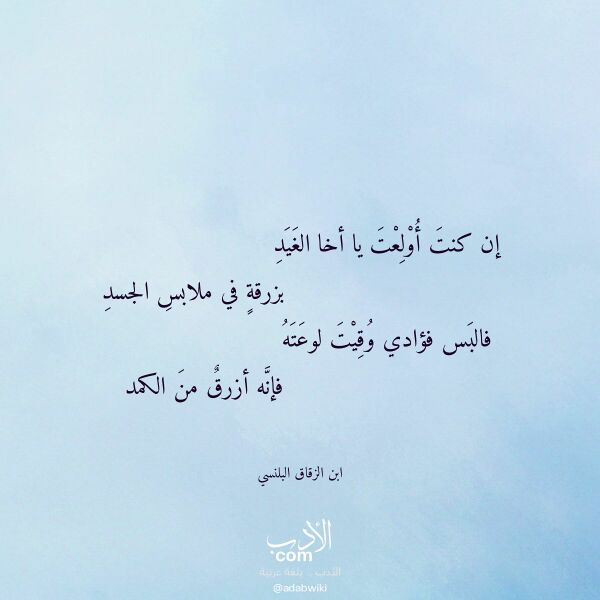 إن كنتَ أُوْلِعْتَ يا أخا الغَيَدِ
بزرقةٍ في ملابسِ الجسدِ
فالبَس فؤادي وُقِيْتَ لوعَتَهُ
فإنَّه أزرقٌ منَ الكمد
ابن الزقاق البلنسي
الأدب
com
الأدب .. بلغة عربية
@adabwiki